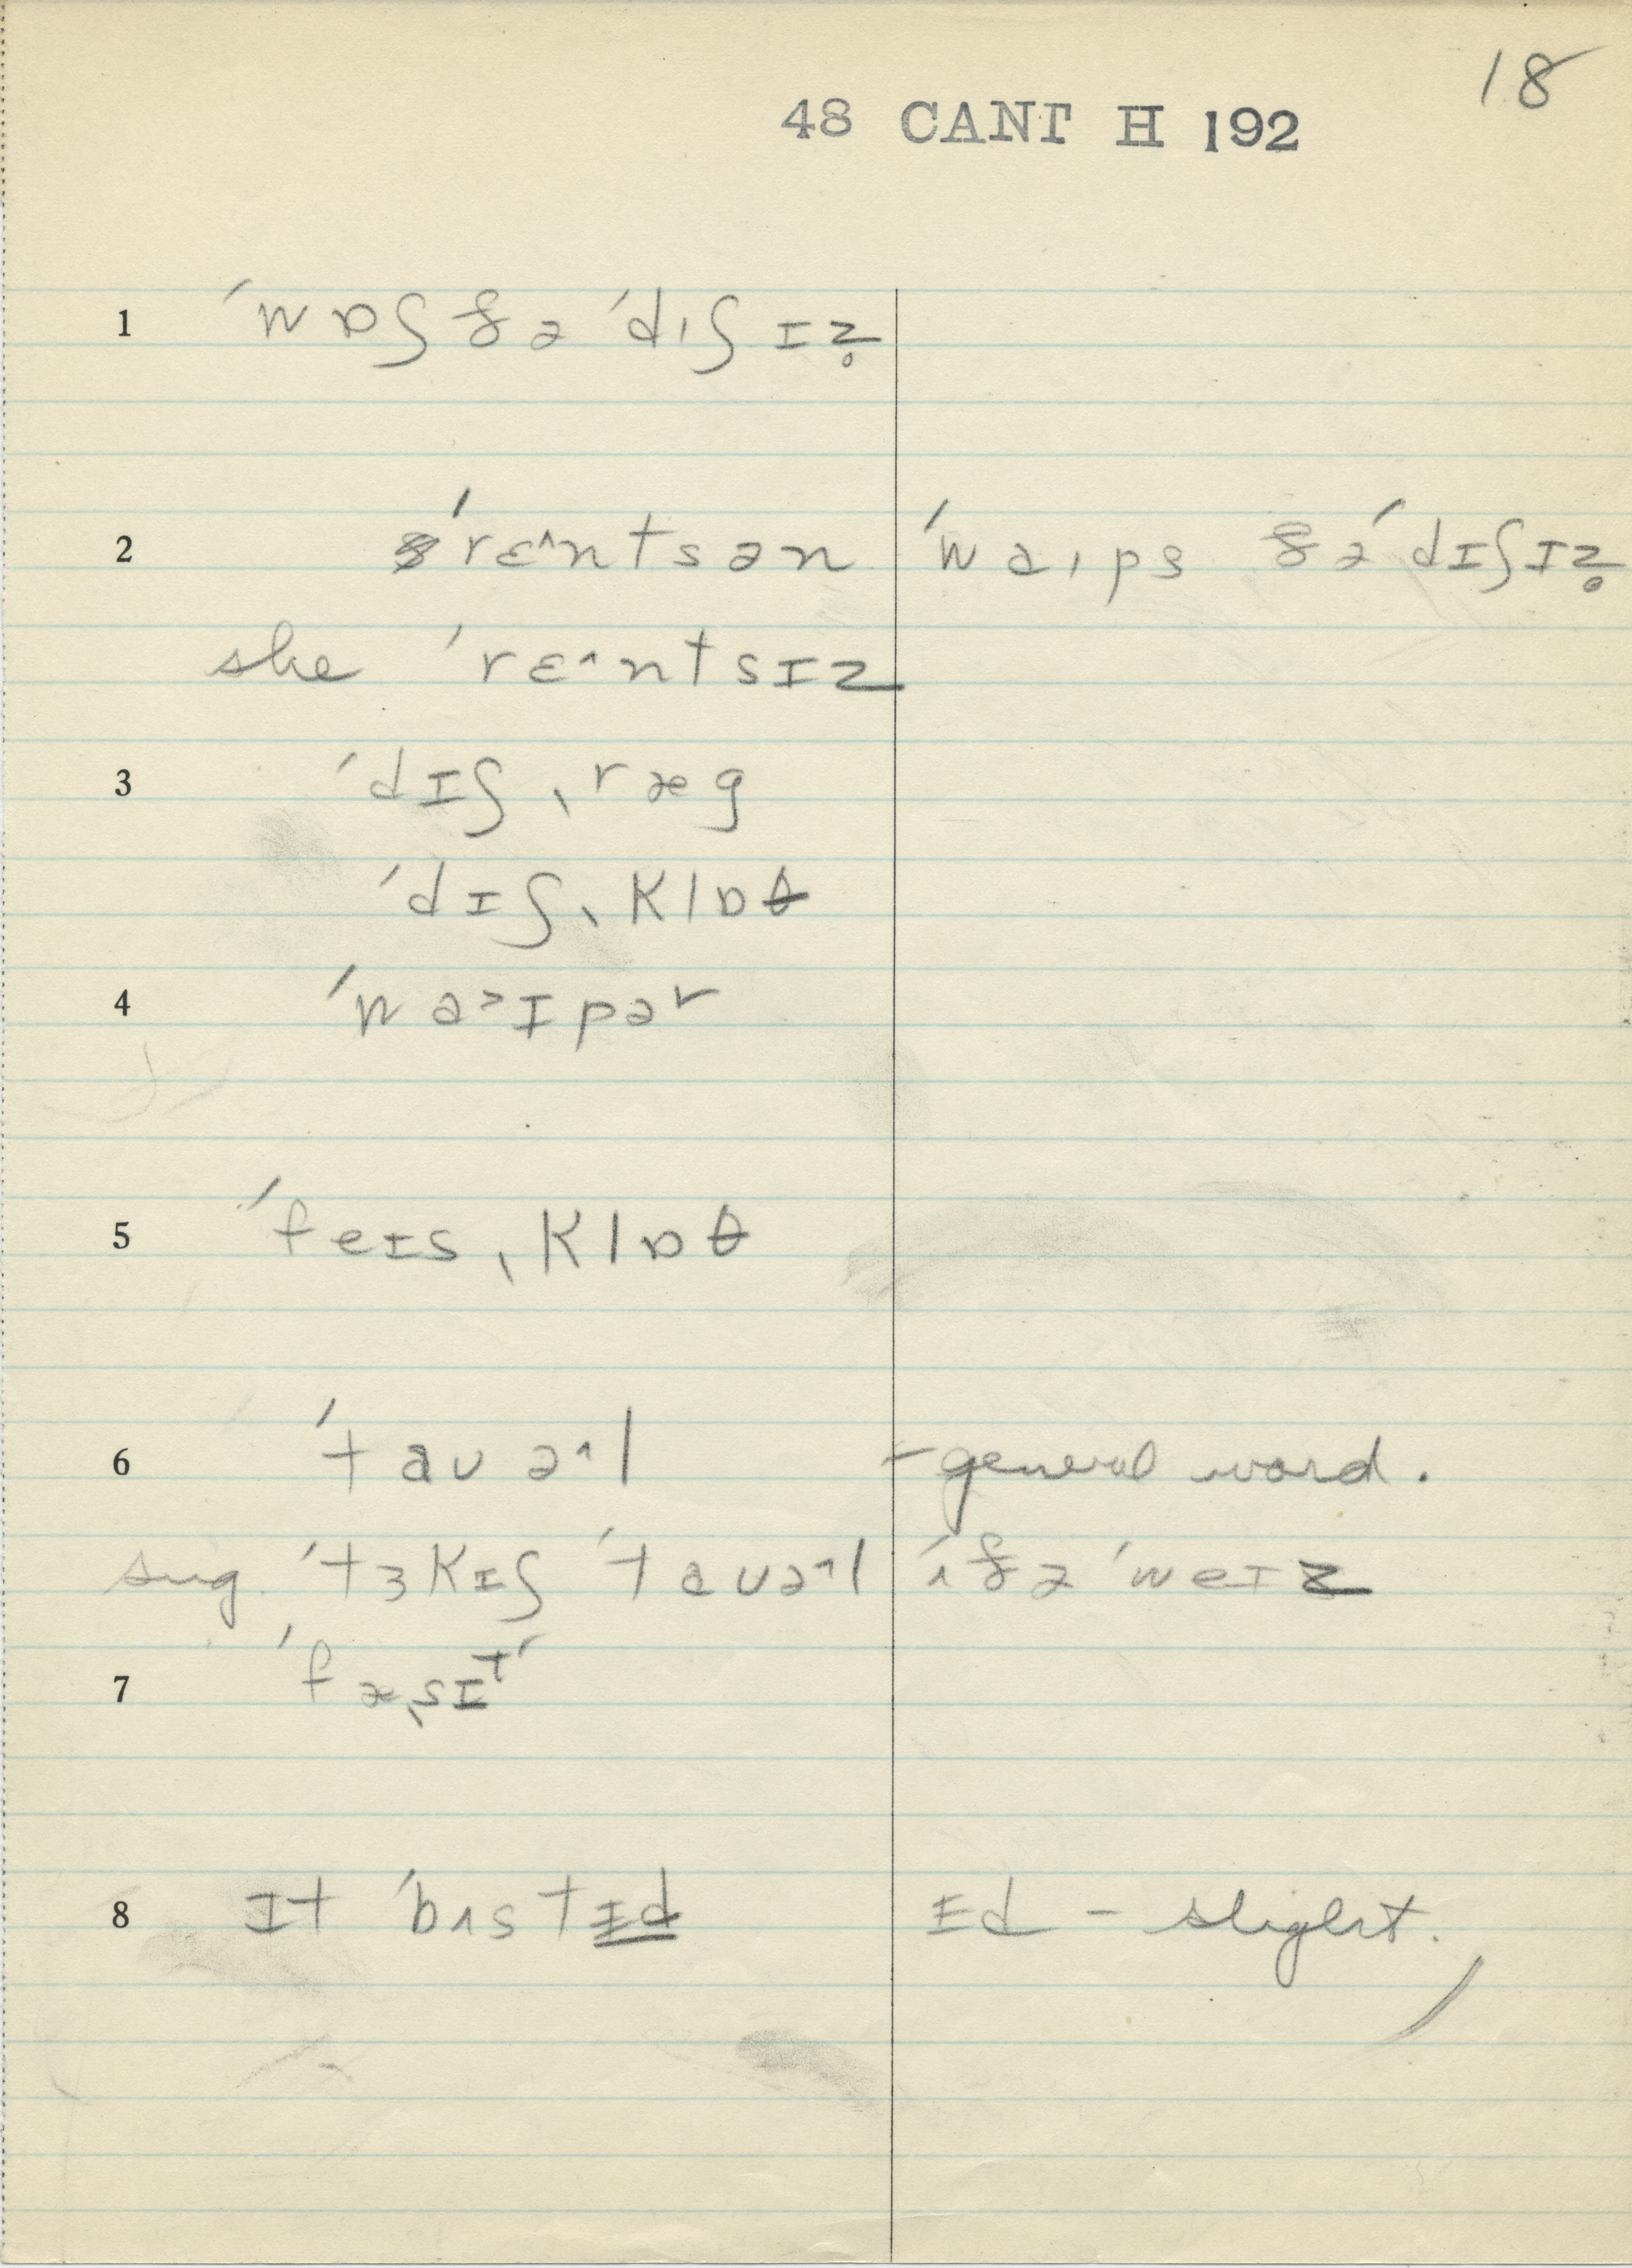 18
48 CANT H 192
1 ˈwɒʃ ðə ˈdɪʃɪz̥
2 ˈrɛ^ntsən ˈwaɪps ðə ˈdɪʃɪz̥
she ˈrɛ^ntsɪz
3 ˈdɪʃˌræg
ˈdɪʃˌklɒθ
4 ˈwa>ɪpər
5 ˈfeɪsˌklɒθ
6 ˈtaʊə^l - general word.
sug. ˈtɜkɪʃ ˈtaʊə^l ˈɪf ðə ˈweɪz
7 ˈfæˌsɪt
8 ɪt ˈbʌstɪd ɪd - slight.